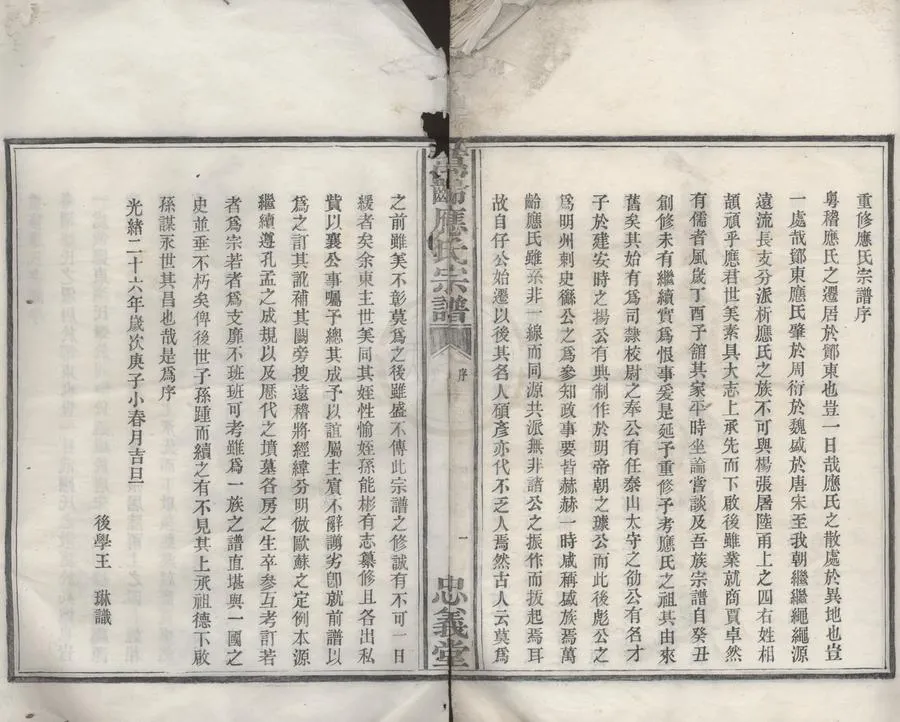 重修應氏宗譜序
粵稽應氏之遷居於鄮東也豈一日哉應氏之散處於異地也豈
一處哉鄮東應氏肇於周衍於魏盛於唐宋至我朝繼繼繩繩源
遠流長支分派析應氏之族不可與楊張屠陸甬上之四右姓相
頡頏乎應君世美素具大志上承先而下啟後雖業就商賈卓然
有儒者風歲丁酉予館其家平時坐論嘗談及吾族宗譜自癸丑
創修未有繼續實爲恨事爰是延予重修予考應氏之祖其由來
舊矣其始有爲司隸校尉之奉公有任泰山太守之劭公有名才
子於建安時之揚公有典制作於明帝朝之璩公而此後彪公之
爲明州刺史㒡公之爲參知政事要皆赫赫一時咸稱盛族焉萬
齡應氏雖系非一線而同源共派無非諸公之振作而拔起焉耳
故自仔公始遷以後其名人碩彥亦代不乏人焉然古人云莫爲
萬齡應氏宗譜
序
一
忠義堂
之前雖美不彰莫爲之後雖盛不傳此宗譜之修誠有不可一日
緩者矣余東主世美同其姪性愉姪孫能彬有志纂修且各出私
貲以襄公事囑予總其成予以誼屬主賓不辭謭劣卽就前譜以
爲之訂其訛補其闕旁搜遠稽將經緯分明倣歐蘇之定例本源
繼續遵孔孟之成規以及歷代之墳墓各房之生卒參互考訂若
者爲宗若者爲支靡不班班可考雖爲一族之譜直堪與一國之
史並垂不朽矣俾後世子孫踵而續之有不見其上承祖德下啟
孫謀永世其昌也哉是爲序
光緒二十六年歲次庚子小春月吉旦
後學王　琳識